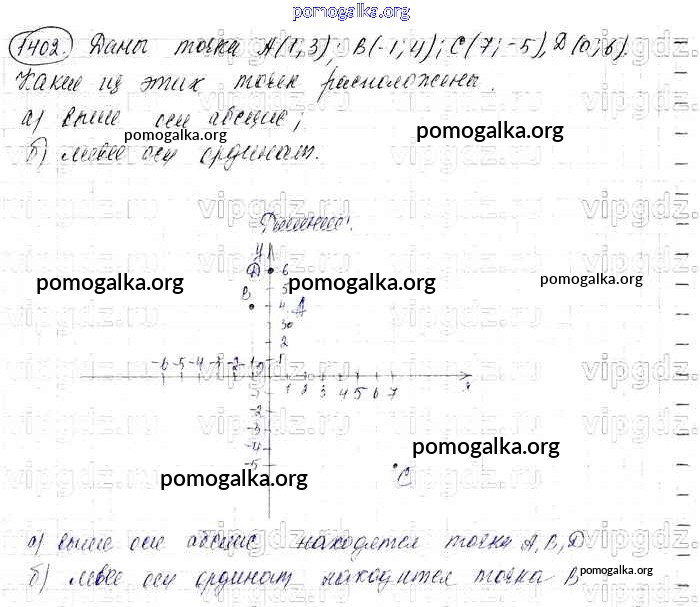 pomogalka.org
1402. Даны точки A(1;3); B(-1;4); C(7;-5), D(0;6).
Какие из этих точек расположены.
а) выше оси абсцисс;
pomogalka.org pomogalka.org
б) левее оси ординат.
vipgdz.ru vipgdz.ru vipgdz.ru vipgdz.ru
Решение:
y
D 6
pomogalka.org pomogalka.org pomogalka.org
B 5
4 A
3
2
-6 -5 -4 -3 -2 -1 0 1
1 2 3 4 5 6 7 x
-1
-2
-3
-4
pomogalka.org
-5 C
pomogalka.org
а) выше оси абсцисс находятся точки A, B, D
б) левее оси ординат находится точка B
pomogalka.org